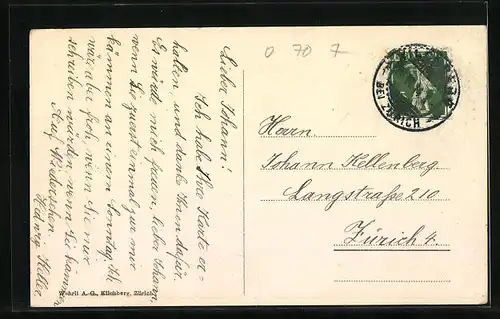 Lieber Johann!
Ich habe Ihre Karte er-
halten, und danke Ihnen dafür.
Es würde mich freuen, lieber Johann,
wenn Sie zuerst einmal zu mir
kämmen an einem Sonntag. Ich
wäre aber froh, wenn Sie mir
schreiben würden, wenn Sie kämmen
Auf Wiedersehen
Hedwig Keller
Wehrli A.-G., Kilchberg, Zürich
0 70 7
BEI ZÜRICH
Herrn
Johann Kellenberg
Langstraße 210
Zürich 4.